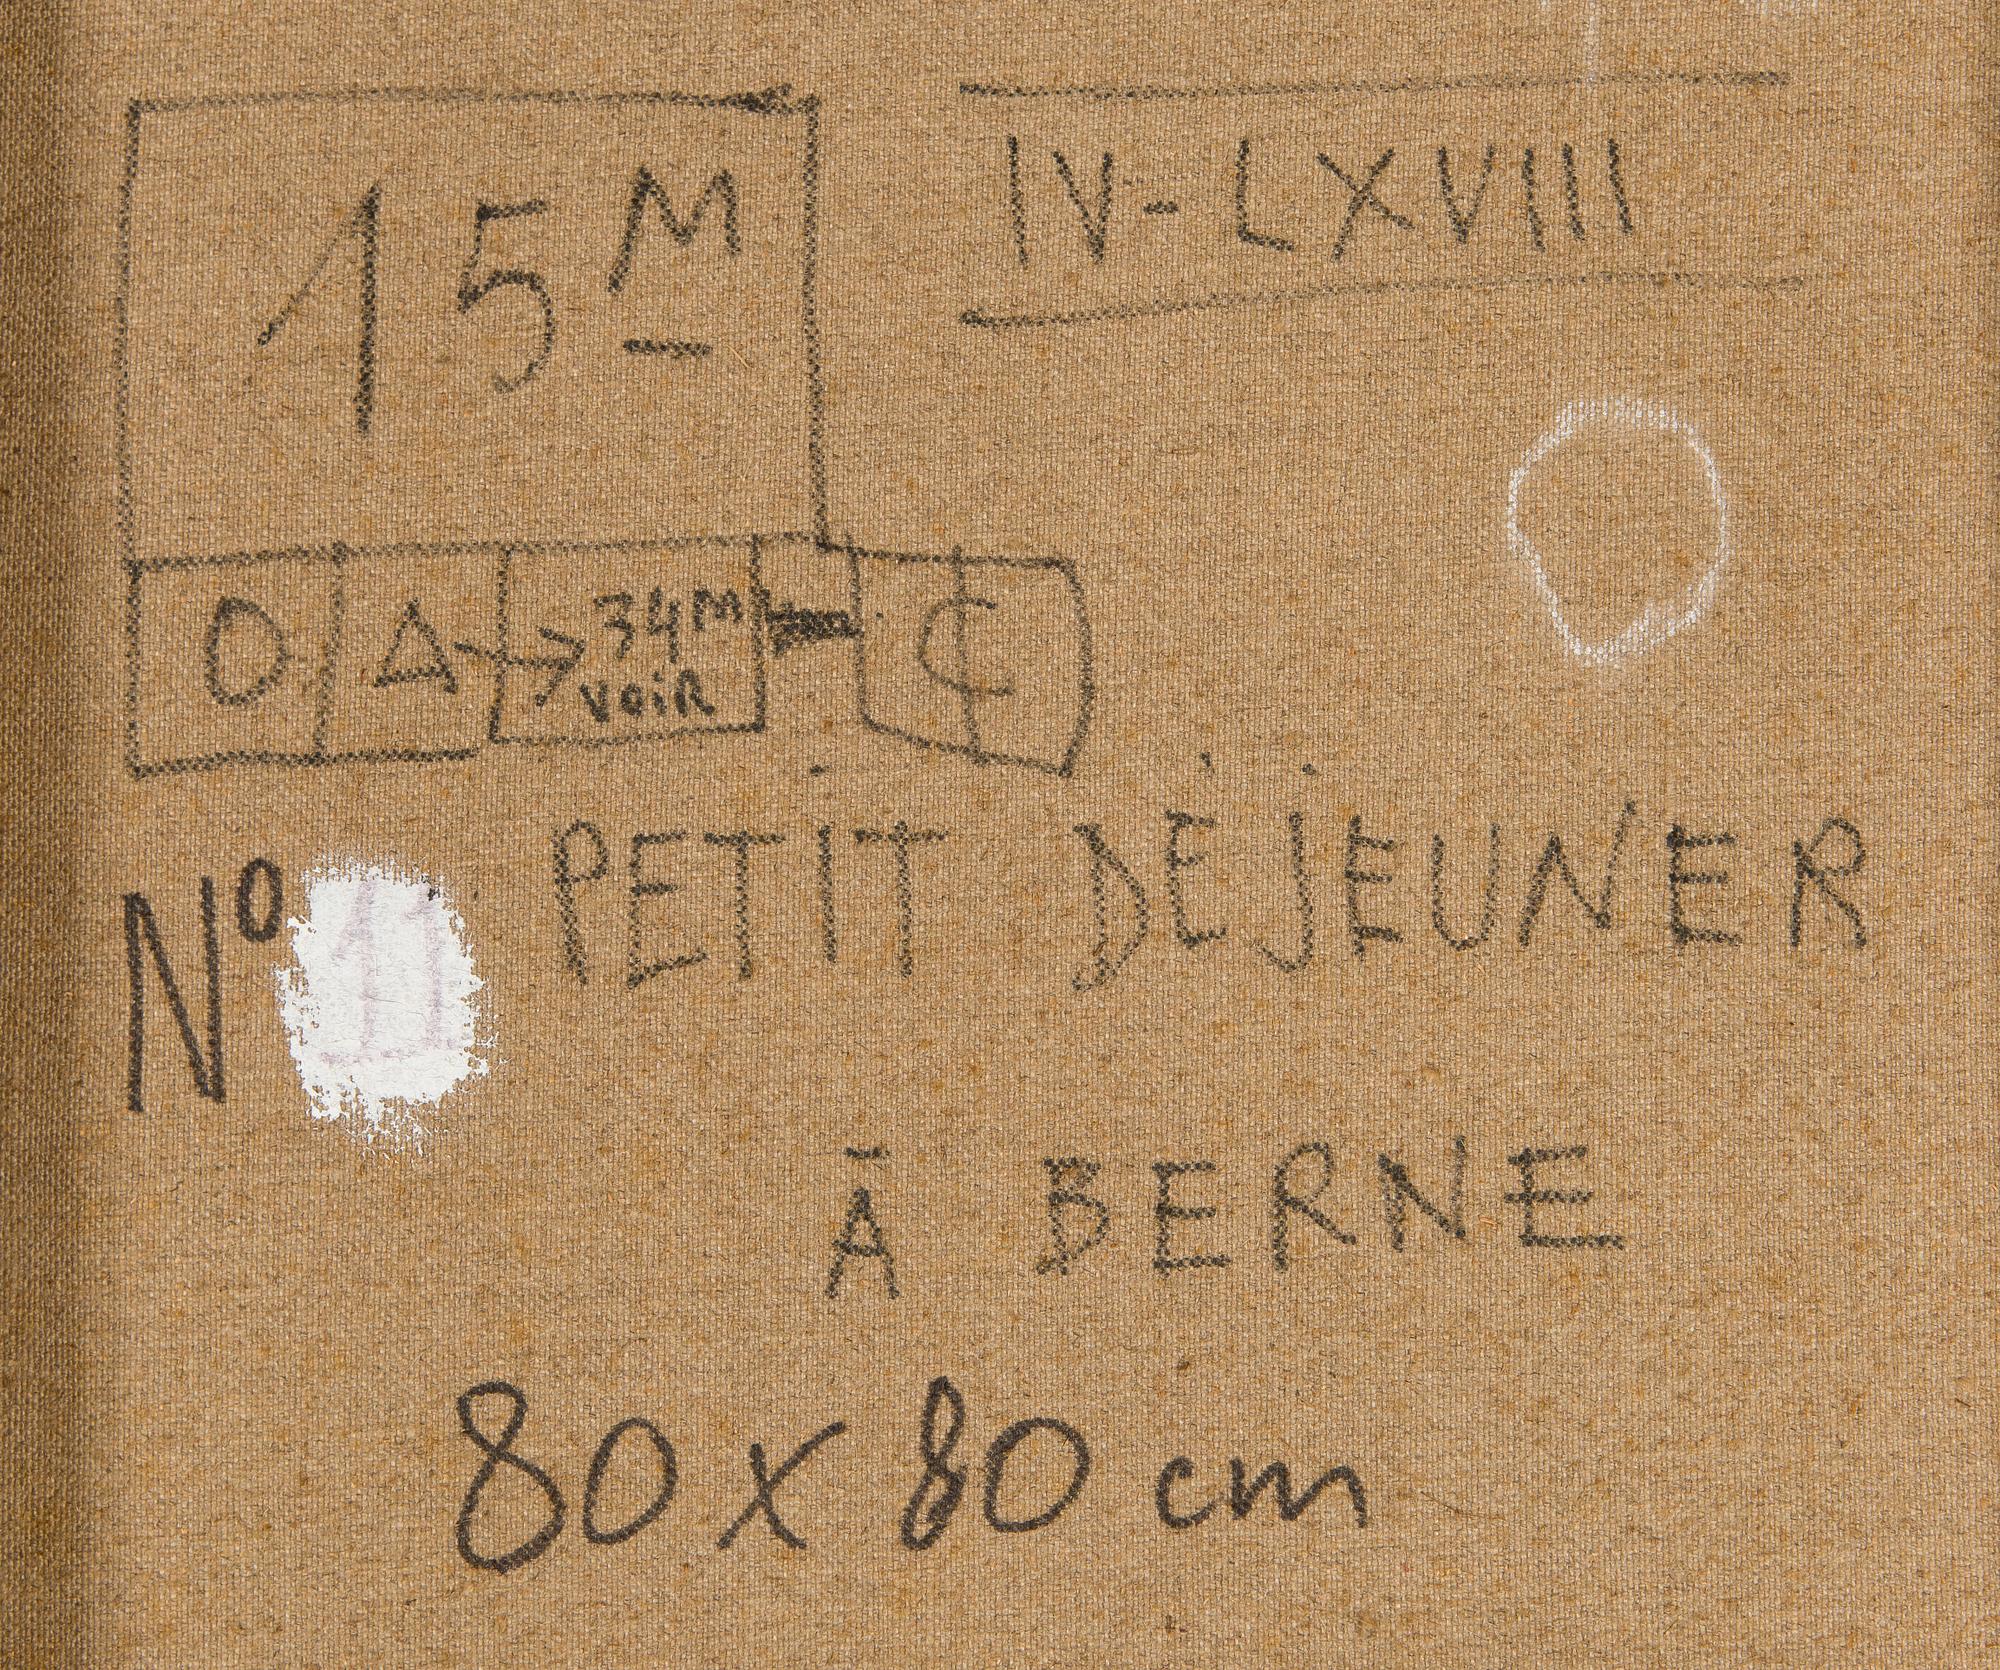 15M
IV-LXVIII
O Δ → 34M C
VOIR
N° 11 PETIT DÉJEUNER
À BERNE
80 x 80 cm